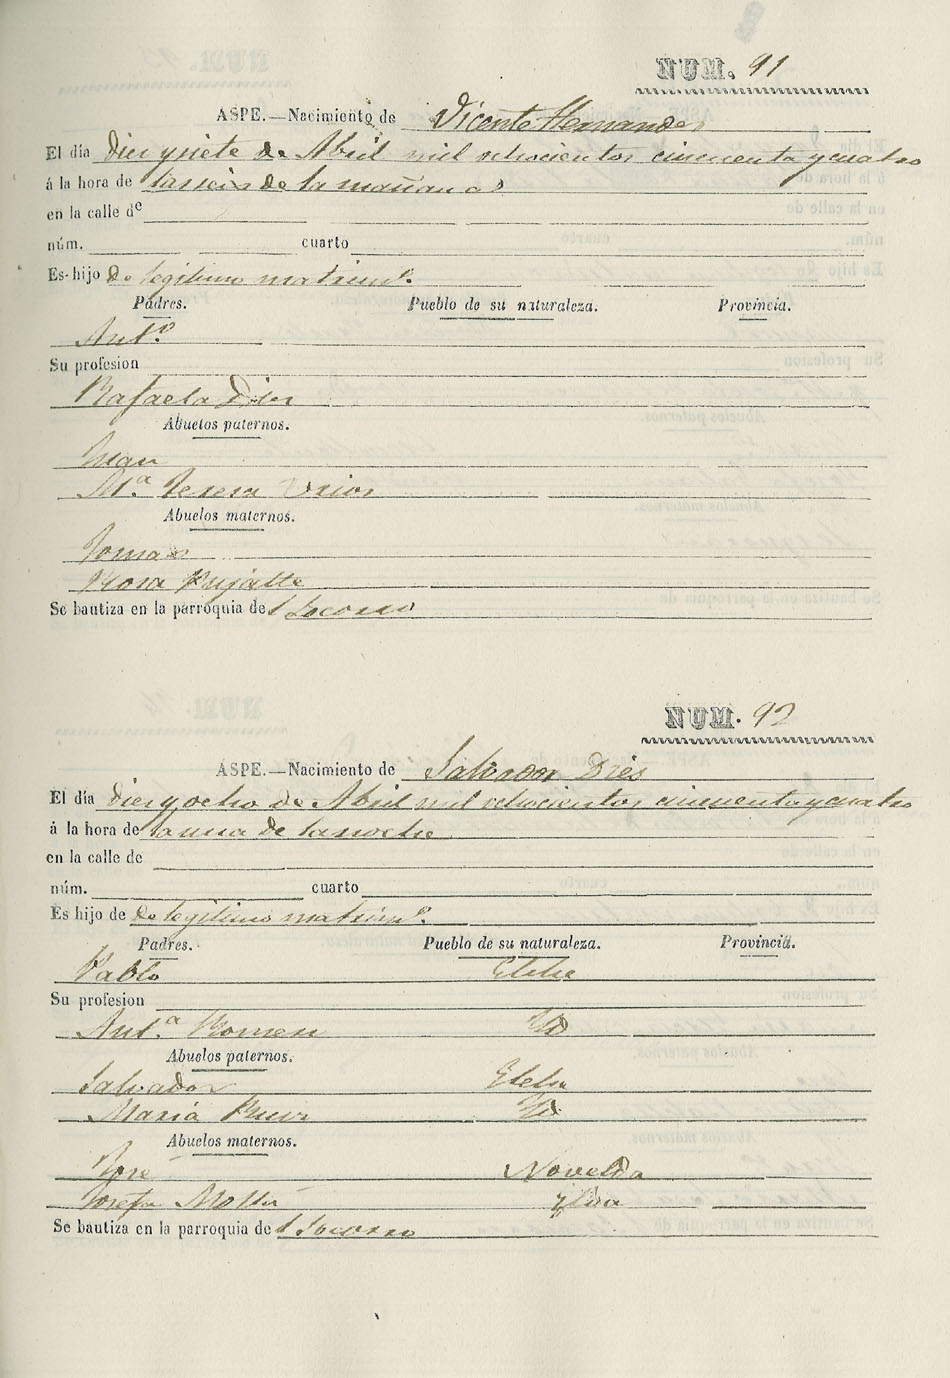 NUM. 91
ASPE.—Nacimiento de Vicente Hernandes
El día diez y siete de Abril mil ochocientos cincuenta y cuatro
á la hora de las seis de la mañana
en la calle de
núm. cuarto
Es hijo de legitimo matrimº.
Padres. Pueblo de su naturaleza. Provincia.
Antº.
Su profesion
Rafaela Dies
Abuelos paternos.
Juan
Mª Teresa
Abuelos maternos.
Tomas
Rosa Pujalte
Se bautiza en la parroquia del Socorro
NUM. 92
ASPE.—Nacimiento de Salvador Dies
El día diez y ocho de Abril mil ochocientos cincuenta y cuatro
á la hora de la una de la noche
en la calle de
núm. cuarto
Es hijo de de legitimo matrimº.
Padres. Pueblo de su naturaleza. Provincia.
Pablo Elche
Su profesion
Antª Romero Id
Abuelos paternos.
Salvador Elche
Maria Id
Abuelos maternos.
José Novelda
Josefa Molla
Se bautiza en la parroquia del Socorro